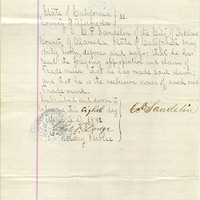 State of California } ss
County of Alameda
I C.P. Sandelin of the City of Oakland
County of Alameda State of California being
duly sworn, deposes and says, that he has
read the foregoing application and claim of
Trade mark, that he has made said claim;
and that he is the exclusive owner of such
trade mark.
Subscribed and sworn to
before me this Eighth day
Dodge
Notary Public
C.P. Sandelin